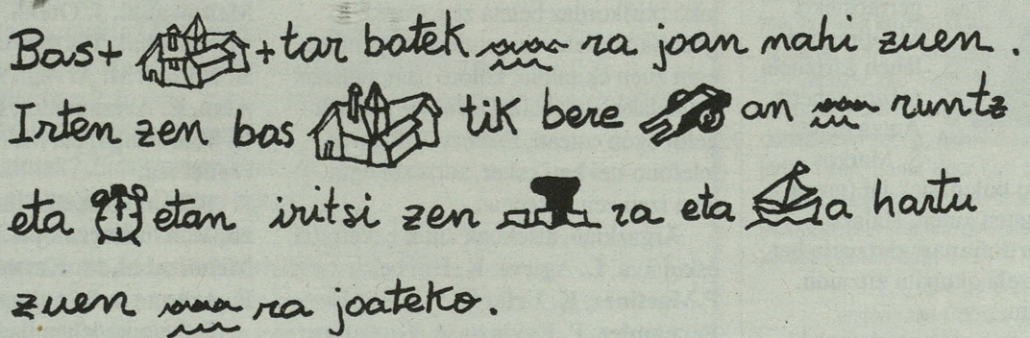 Bas+ +tar batek ra joan nahi zuen.
Irten zen bas tik bere an runtz
eta etan iritsi zen ra eta a hartu
zuen ra joateko.